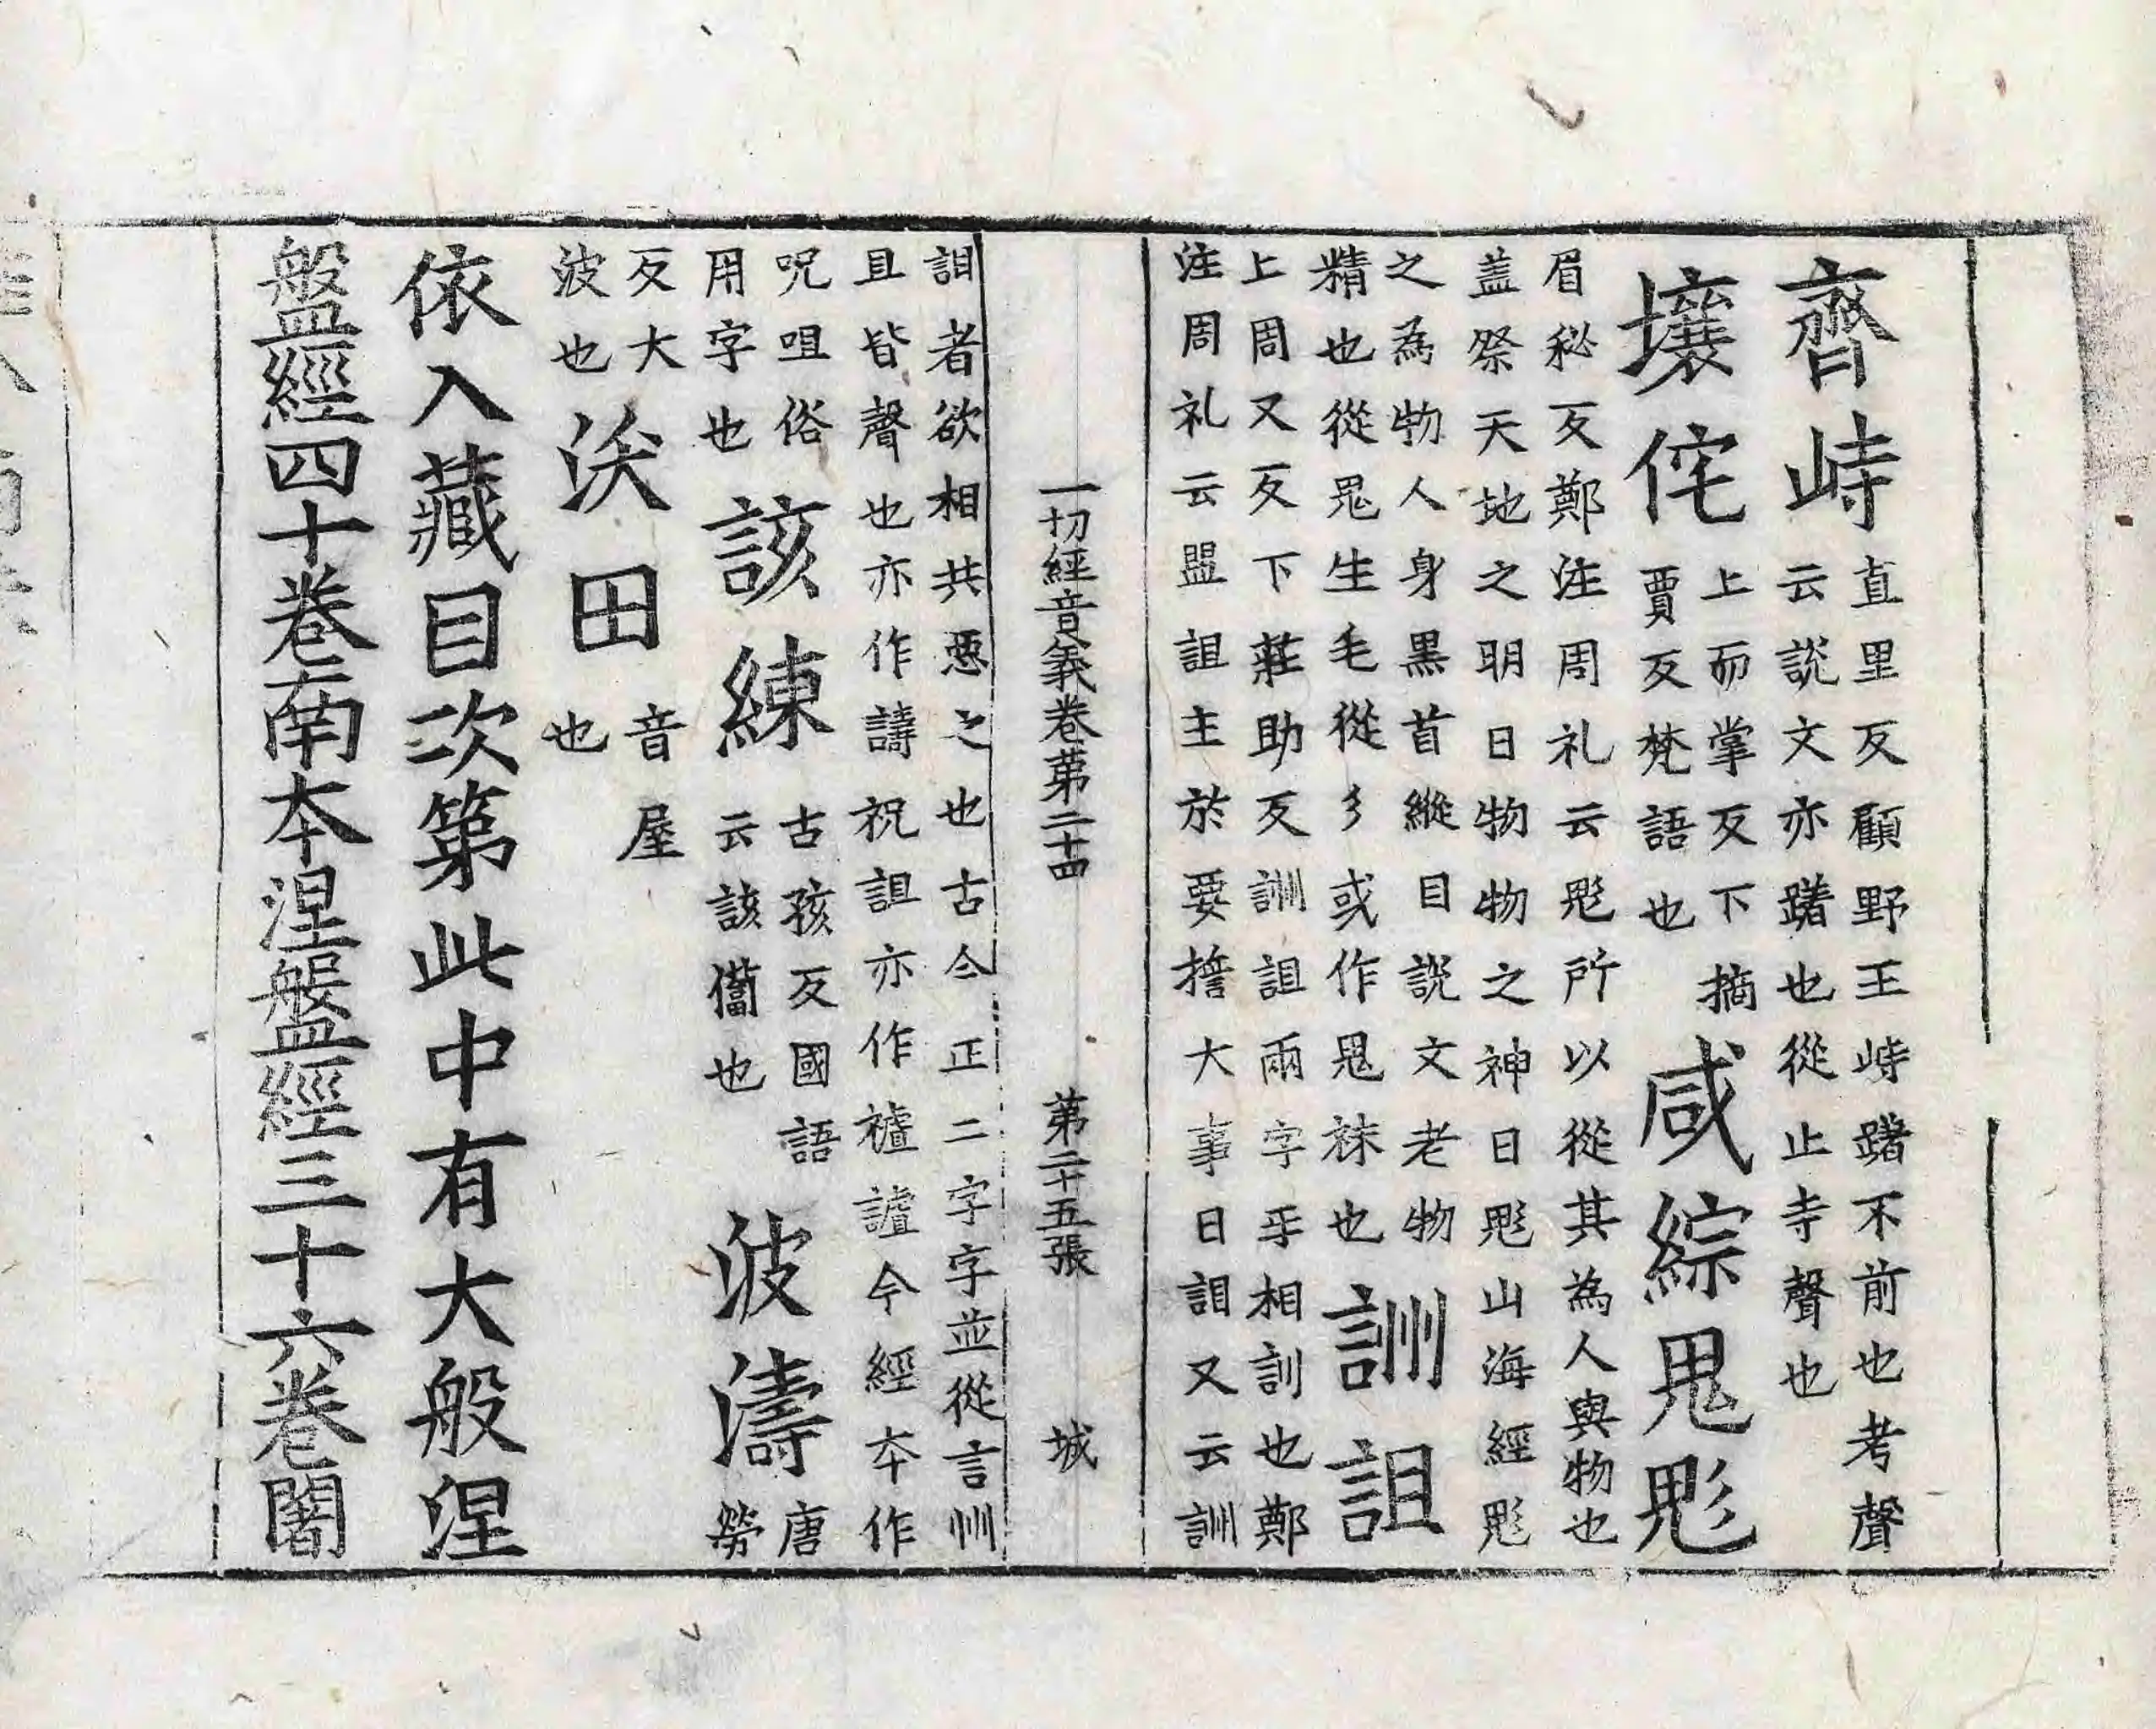 齊峙直里反顧野王峙躇不前也考聲
云說文亦躇也從止寺聲也
壤侘上而掌反下摘
賈反梵語也
咸綜鬼鬽
眉秘反鄭注周礼云鬽所以從其為人與物也
盖祭天地之明日物物之神日鬽山海經鬽
之為物人身黑首縱目說文老物
精也從鬼生毛從彡或作鬼袜也
訓詛
上周又反下莊助反詶詛兩字乎相訓也鄭
注周礼云盟詛主於要擔大事日詛又云詶
一切經音義卷苐二十四 苐二十五張 城
詛者欲相共惡之也古今正二字字並從言州
且皆聲也亦作譸祝詛亦作禇謯今經夲作
呪咀俗
用字也
該練古孩反國語
云該俻也
波濤唐
勞
反大
波也
沃田音屋
也
依入藏目次第此中有大般涅
盤經四十卷南夲涅盤經三十六卷闍